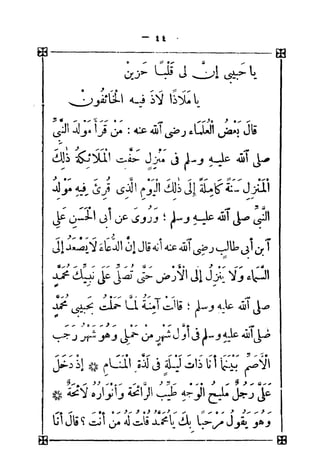 - ٤٤ -
يا حَبيبي إنَّ لى قَلْبًا حَزِينْ
يا مَلَاذًا لَاذَ فيه الْخَائفُونْ
قالَ بَعْضُ الْعُلَمَاء رضى اللهُ عنه : مَنْ قَرَأَ مَوْلِدَ النَّبِيِّ
صلى اللهُ عليـه وسلم فى مَنْزِلٍ حَفَّت الْمَلَائكَةُ ذٰلِكَ
الْمَنْزِلَ سَنَةً كَامِلَةً إلَى ذٰلكَ الْيَوْمِ الَّذِى قُرِئَ فِيهِ مَوْلِدُ
النَّبِيِّ صلى اللهُ عليـه وسلم ؛ وَرُوِىَ عن أبى الْحَسَنِ عَلِىِّ
آبنِ أبى طالبٍ رضى اللهُ عنه أنه قال إنَّ الدُّعَاءَ لَا يَصْعَدُ إلَى
السَّمَاءِ وَلَا يَنْزِلُ إلى الْأرْضِ حَتَّى تُصَلِّىَ عَلَى نَبِيِّكَ مُحَمَّدٍ
صلى اللهُ عليه وسلم ؛ قالَتْ آمِنَةُ لَمَّا حَمَلْتُ بِحَبِيبِى مُحَمَّدٍ
صلى اللهُ عليه وسلم فى أوَّلِ شَهْرٍ مِنْ حَمْلِى وَهُوَ شَهْرُ رَجَبٍ
الْأَصَمِّ بَيْنَمَا أنَا ذَاتَ لَيْلَةٍ فى لَذَّةِ الْمَنَـامِ * إذْ دَخَلَ
عَلَىَّ رَجُلٌ مَلِيحُ الْوَجْهِ طَيِّبُ الرَّائحَةِ وَأَنْوَارُهُ لَائحَةٌ *
وَهُوَ يَقُولُ مَرْحَبًا بِكَ يَا مُحَمَّدُ قُلْتُ لَهُ مَنْ أنْتَ ؟ قالَ أنَا